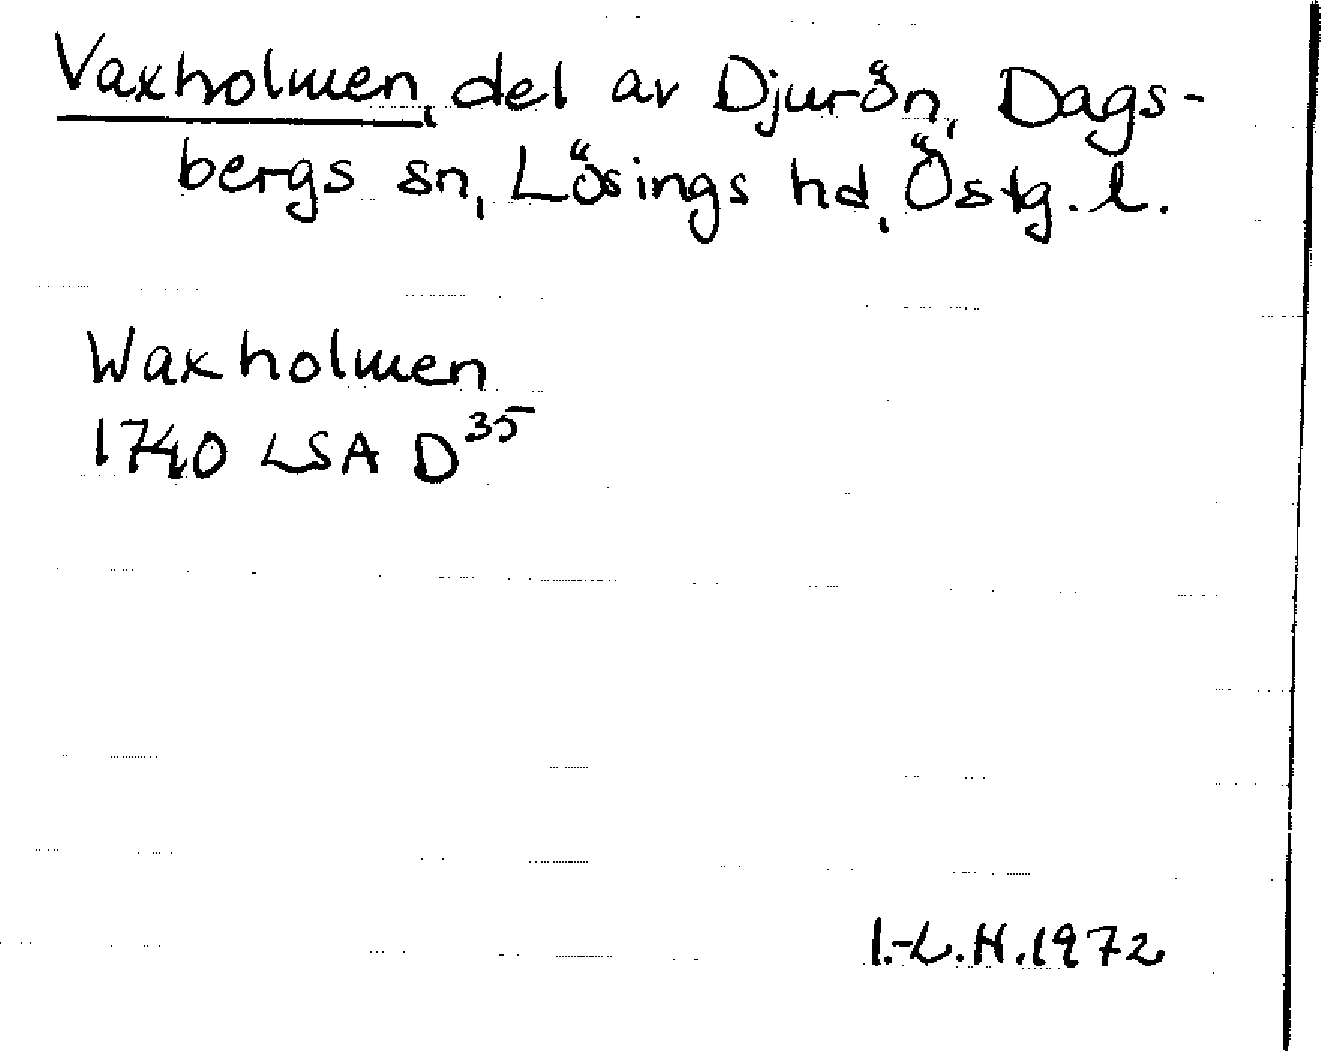 Vaxholmen, del av Djurön, Dags-
bergs sn, Lösings hd, Östg. l.
Waxholmen
1740 LSA D³⁵
I.-L.H. 1972